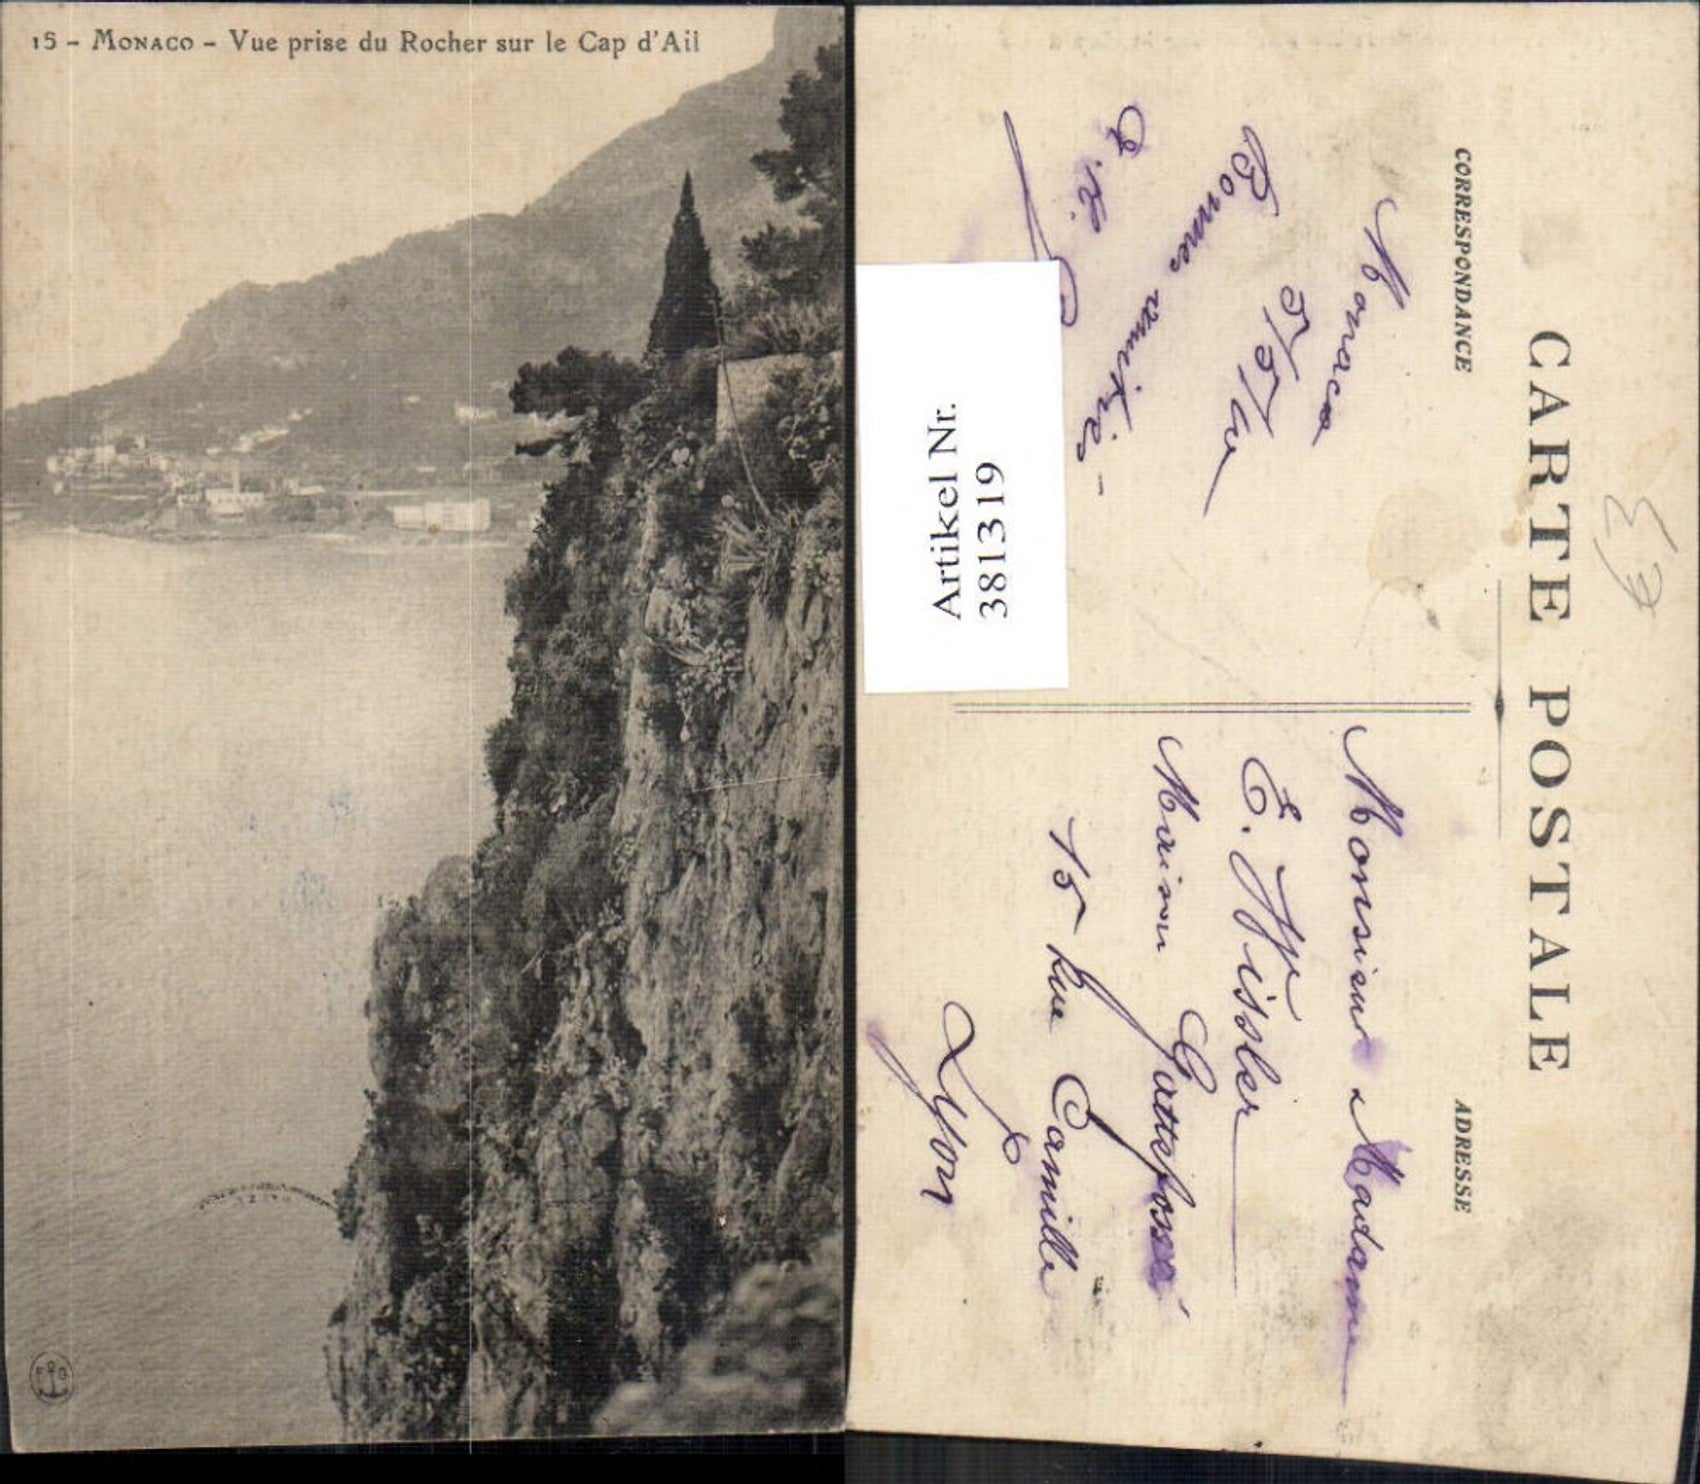 15 - MONACO - Vue prise du Rocher sur le Cap d'Ail
E B
CARTE POSTALE
CORRESPONDANCE
ADRESSE
Monaco
Bonnes amitiés -
Artikel Nr.
381319
Monsieur Madame
E.
Maison Gattefossé
15 Rue Camille
Lyon